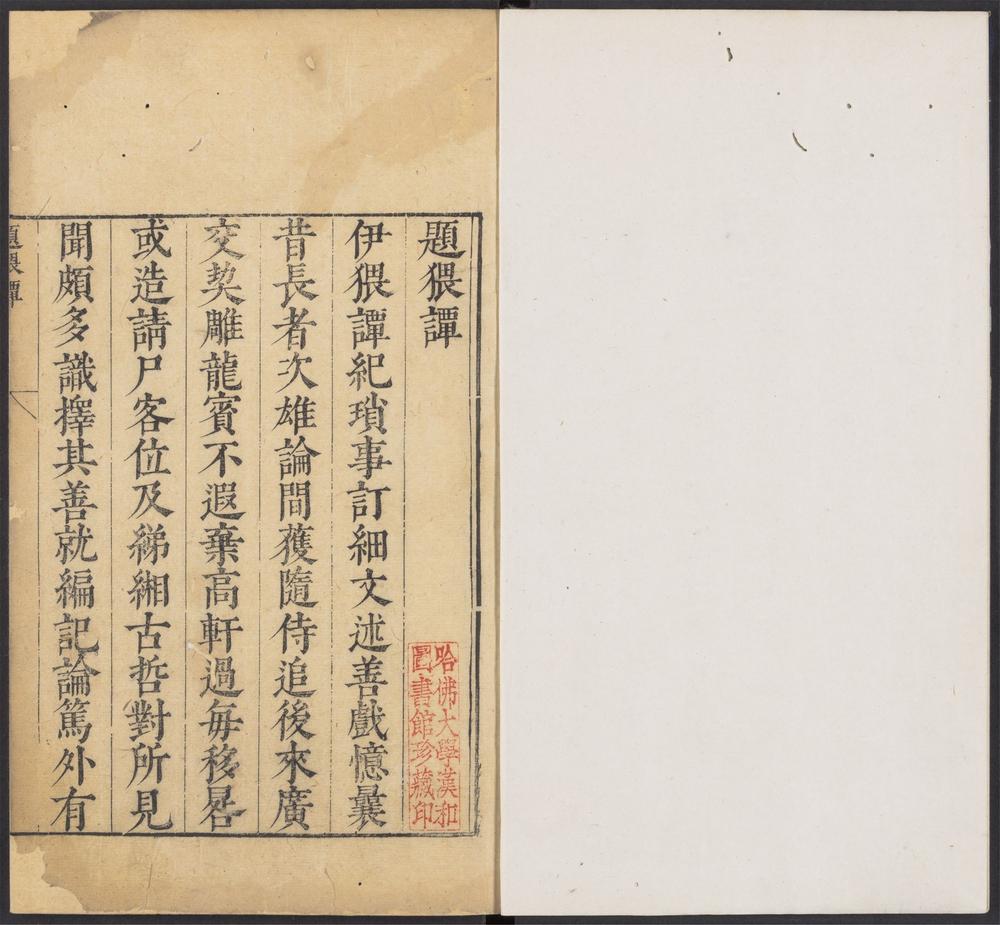 題猥譚
伊猥譚紀瑣事訂細文述善戲憶曩
昔長者次雄論間蒦隨侍追後來廣
交契雕龍賓不遐棄高軒過每移晷
或造請尸客位及綈緗古哲對所見
聞頗多識擇其善就編記論篤外有
題猥譚
哈佛大學漢和
圖書館珍藏印